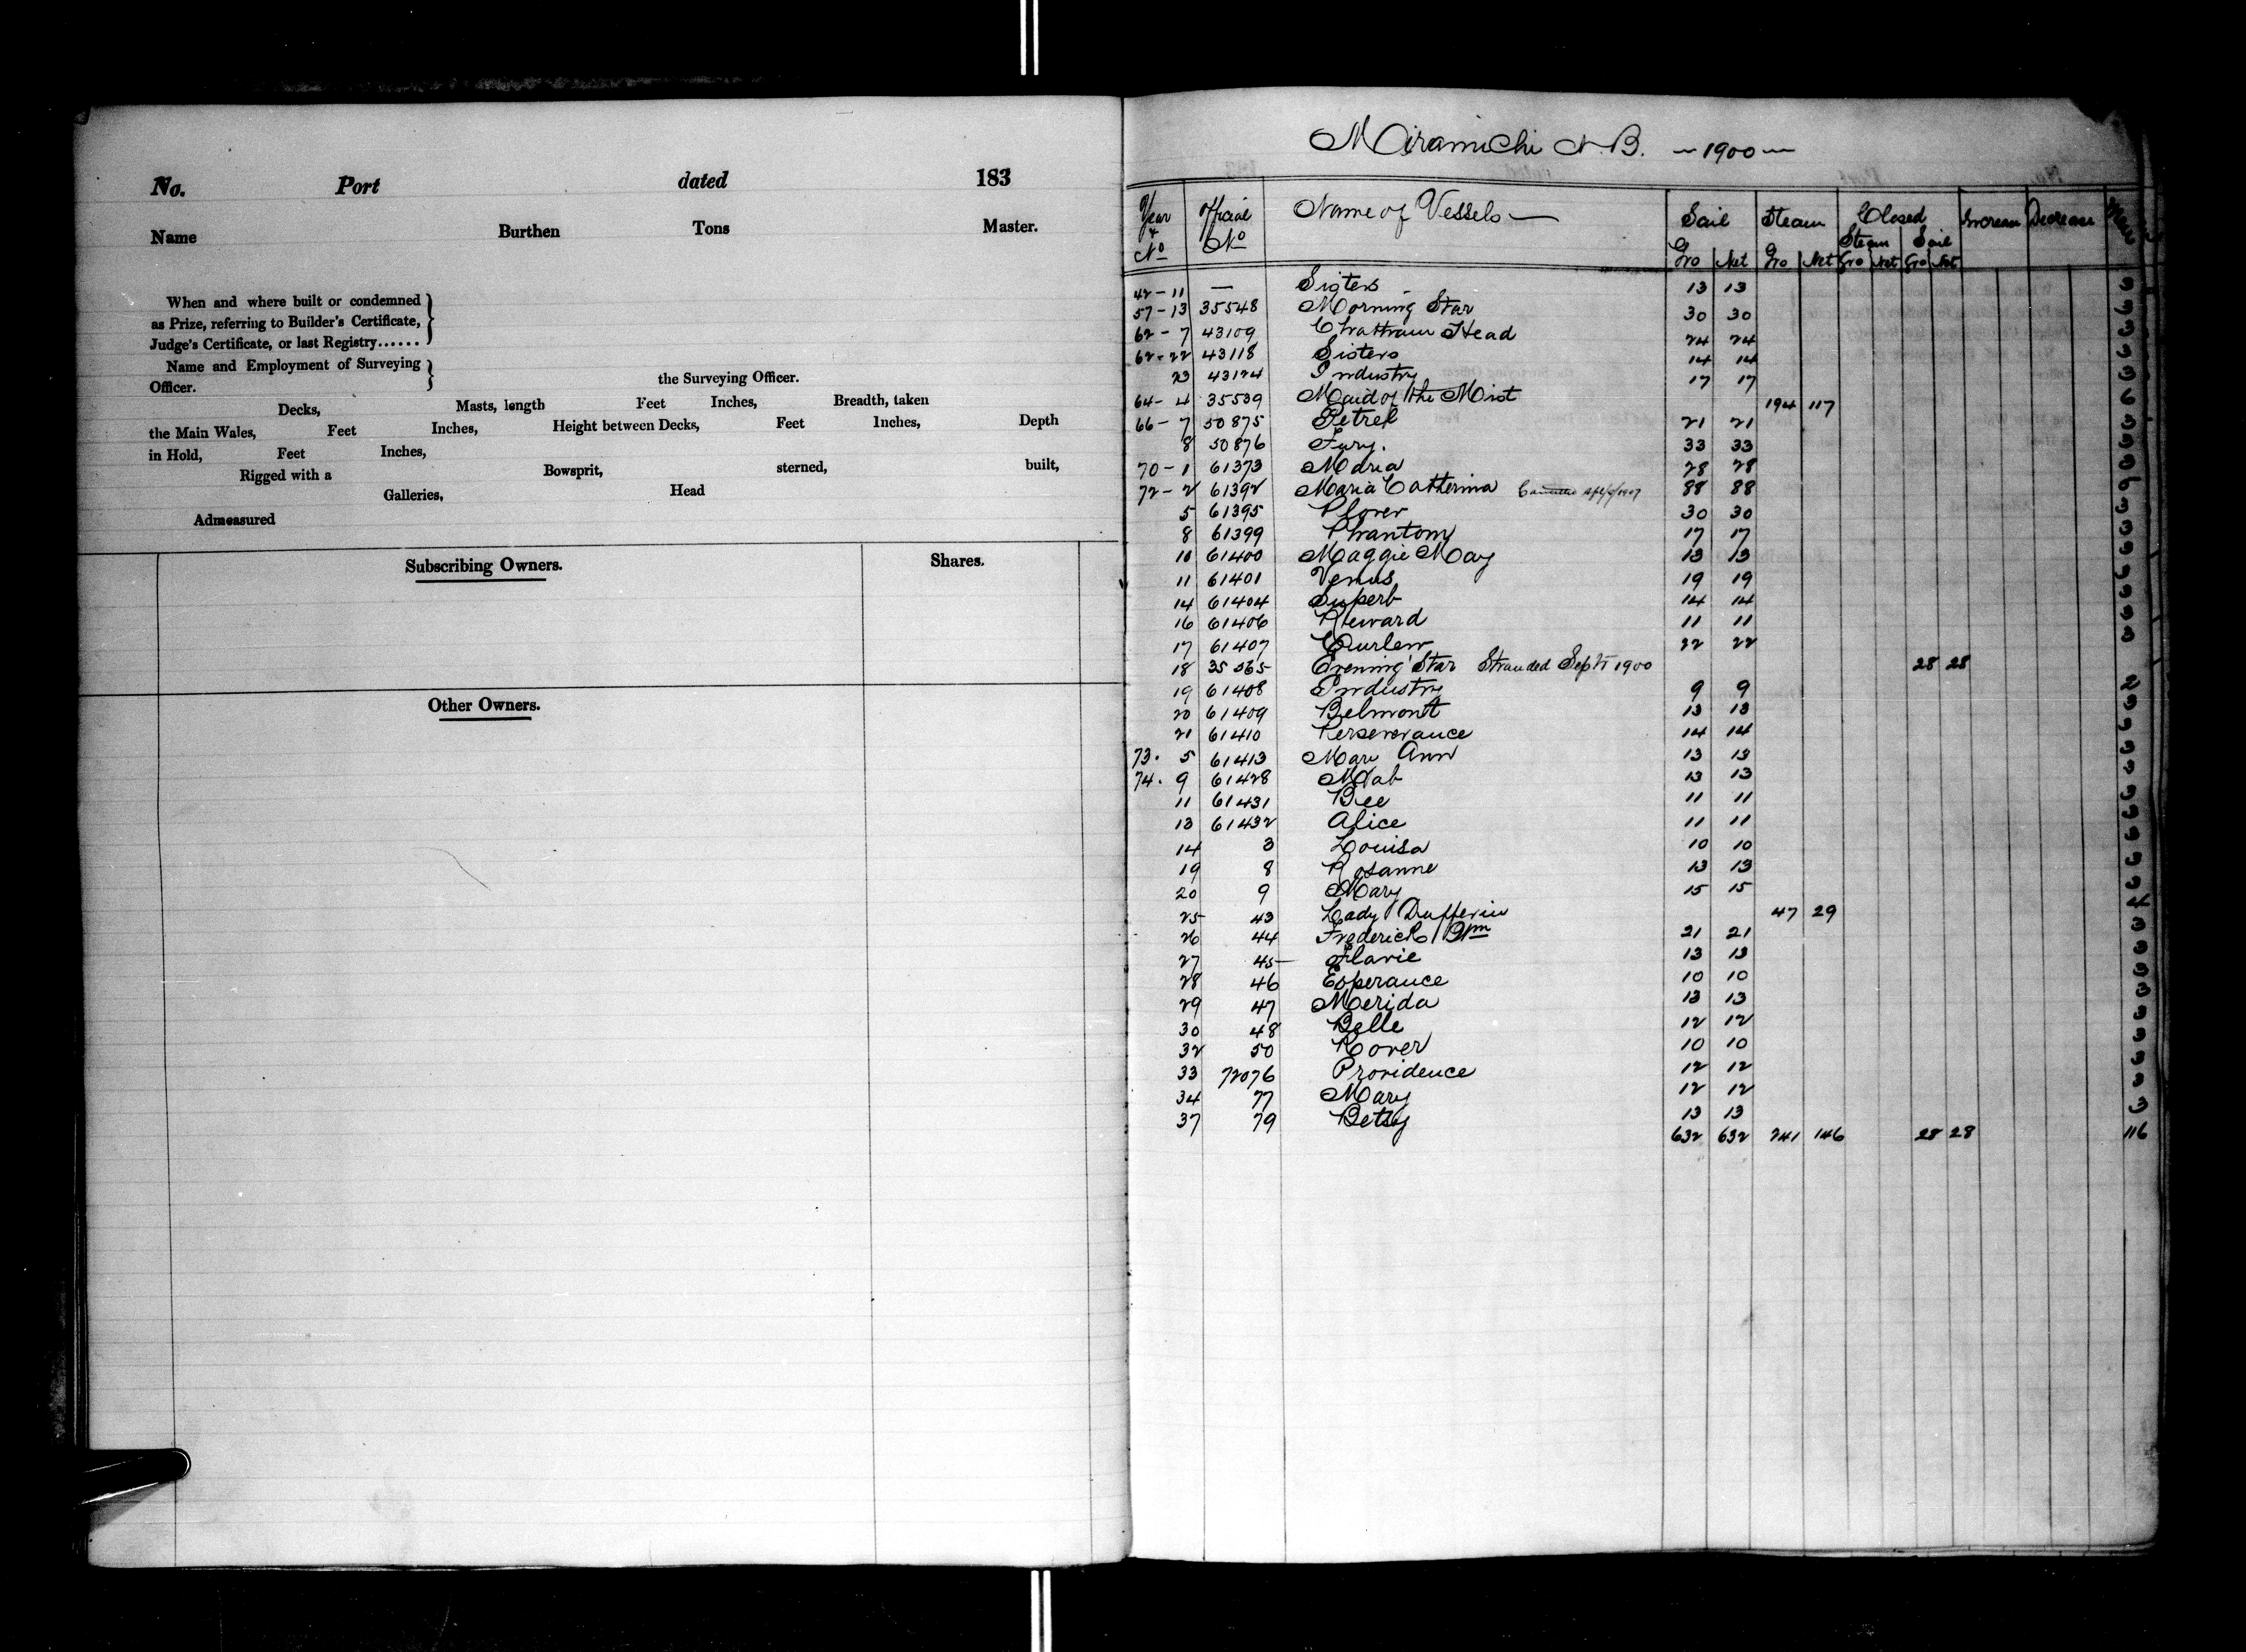 No. Port dated 183
Name Burthen Tons Master.
When and where built or condemned
as Prize, referring to Builder's Certificate,
Judge's Certificate, or last Registry......
Name and Employment of Surveying
Officer. the Surveying Officer.
Decks, Masts, length Feet Inches, Breadth, taken
the Main Wales, Feet Inches, Height between Decks, Feet Inches, Depth
in Hold, Feet Inches,
Rigged with a Bowsprit, sterned, built,
Galleries, Head
Admeasured
Subscribing Owners. Shares.
Other Owners.
Miramichi N.B. — 1900 —
Year & No Official No Name of Vessels — Sail Steam Closed Increase Decrease Men
Steam Sail
Gro Net Gro Net Gro Net Gro Net
42-11 — Sisters 13 13 3
57-13 35548 Morning Star 30 30 3
62-7 43109 Chatham Head 24 24 3
62-22 43118 Sisters 14 14 3
23 43124 Industry 17 17 3
64-4 35539 Maid of the Mist 194 117 6
66-7 50875 Petrel 21 21 3
8 50876 Fury. 33 33 3
70-1 61373 Maria 28 28 3
72-2 61392 Maria Catherina 1907 88 88
5 61395 Plover 30 30 3
8 61399 Phantom 17 17 3
10 61400 Maggie May 13 13 3
11 61401 Venus 19 19 3
14 61404 Superb 14 14 3
16 61406 Reward 11 11 3
17 61407 Curlew 22 22 3
18 35565 Evening Star Stranded Sept 1900 28 28
19 61408 Industry 9 9 2
20 61409 Belmont 13 13 3
21 61410 Perseverance 14 14 3
73. 5 61413 Mary Ann 13 13 3
74. 9 61428 Mab 13 13 3
11 61431 Bee 11 11 3
13 61432 Alice 11 11 3
14 3 Louisa 10 10 3
19 8 Rosanne 13 13 3
20 9 Mary 15 15 3
25 43 Lady Dufferin 47 29 4
26 44 Frederick Wm 21 21 3
27 45 Flavie 13 13 3
28 46 Esperance 10 10 3
29 47 Merida 13 13 3
30 48 Belle 12 12 3
32 50 Rover 10 10 3
33 72076 Providence 12 12 3
34 77 Mary 12 12 3
37 79 Betsy 13 13 3
632 632 241 146 28 28 116